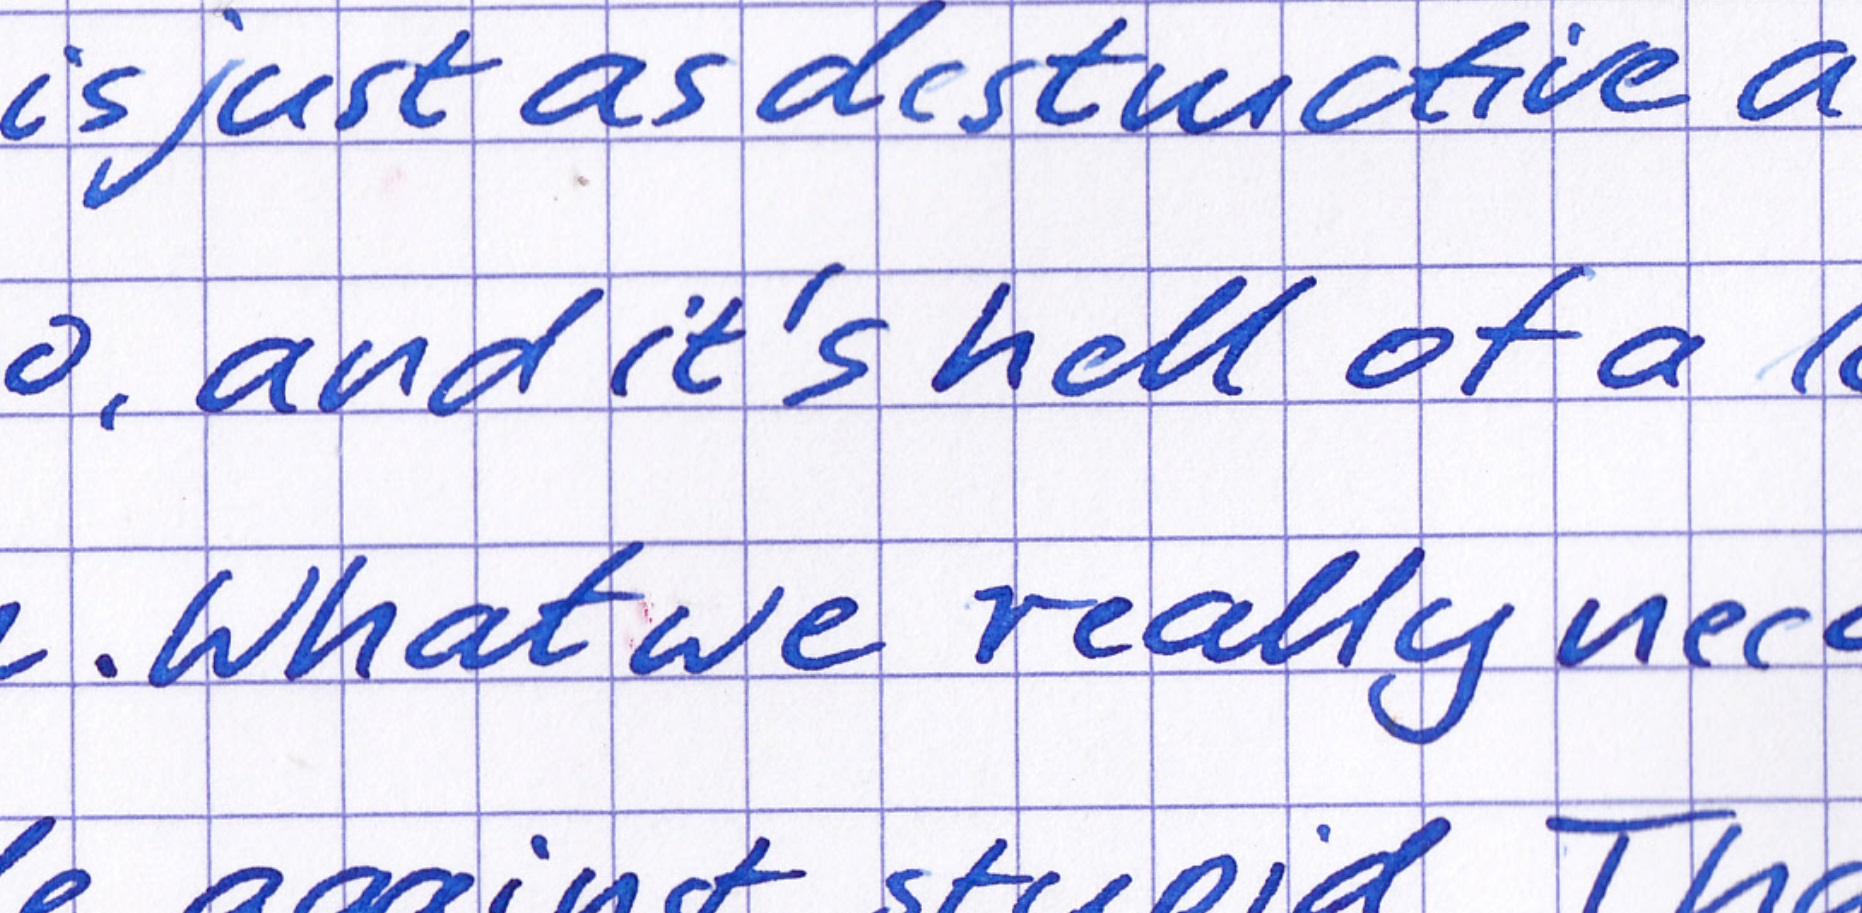 is just as destructive a
o, and it's hell of a lo
. What we really need
le against stupid. The